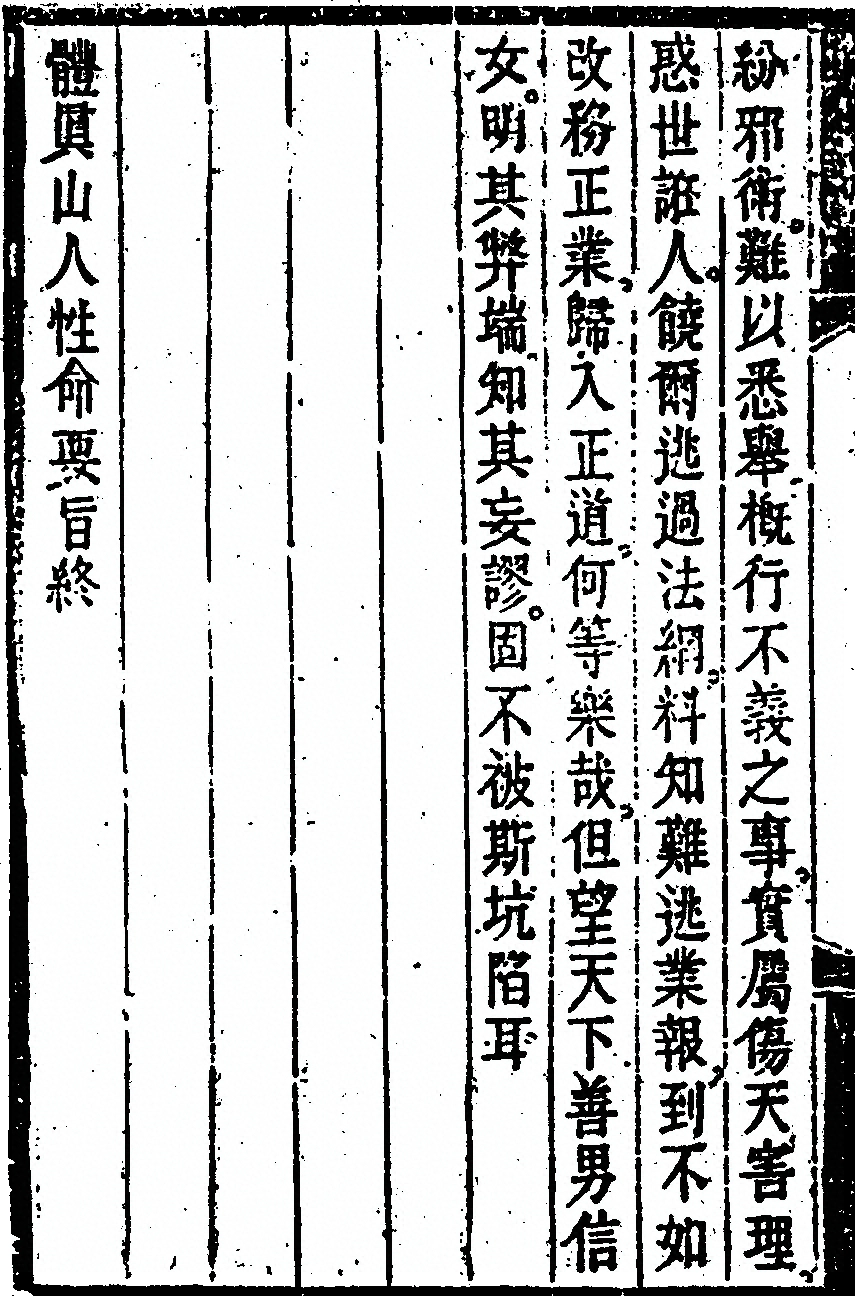 紛邪術難以悉舉概行不義之事實屬傷天害理
惑世誑人饒爾逃過法網料知難逃業報到不如
改務正業歸入正道何等樂哉但望天下善男信
女明其弊端知其妄謬固不被斯坑陷耳
體眞山人性命要旨終